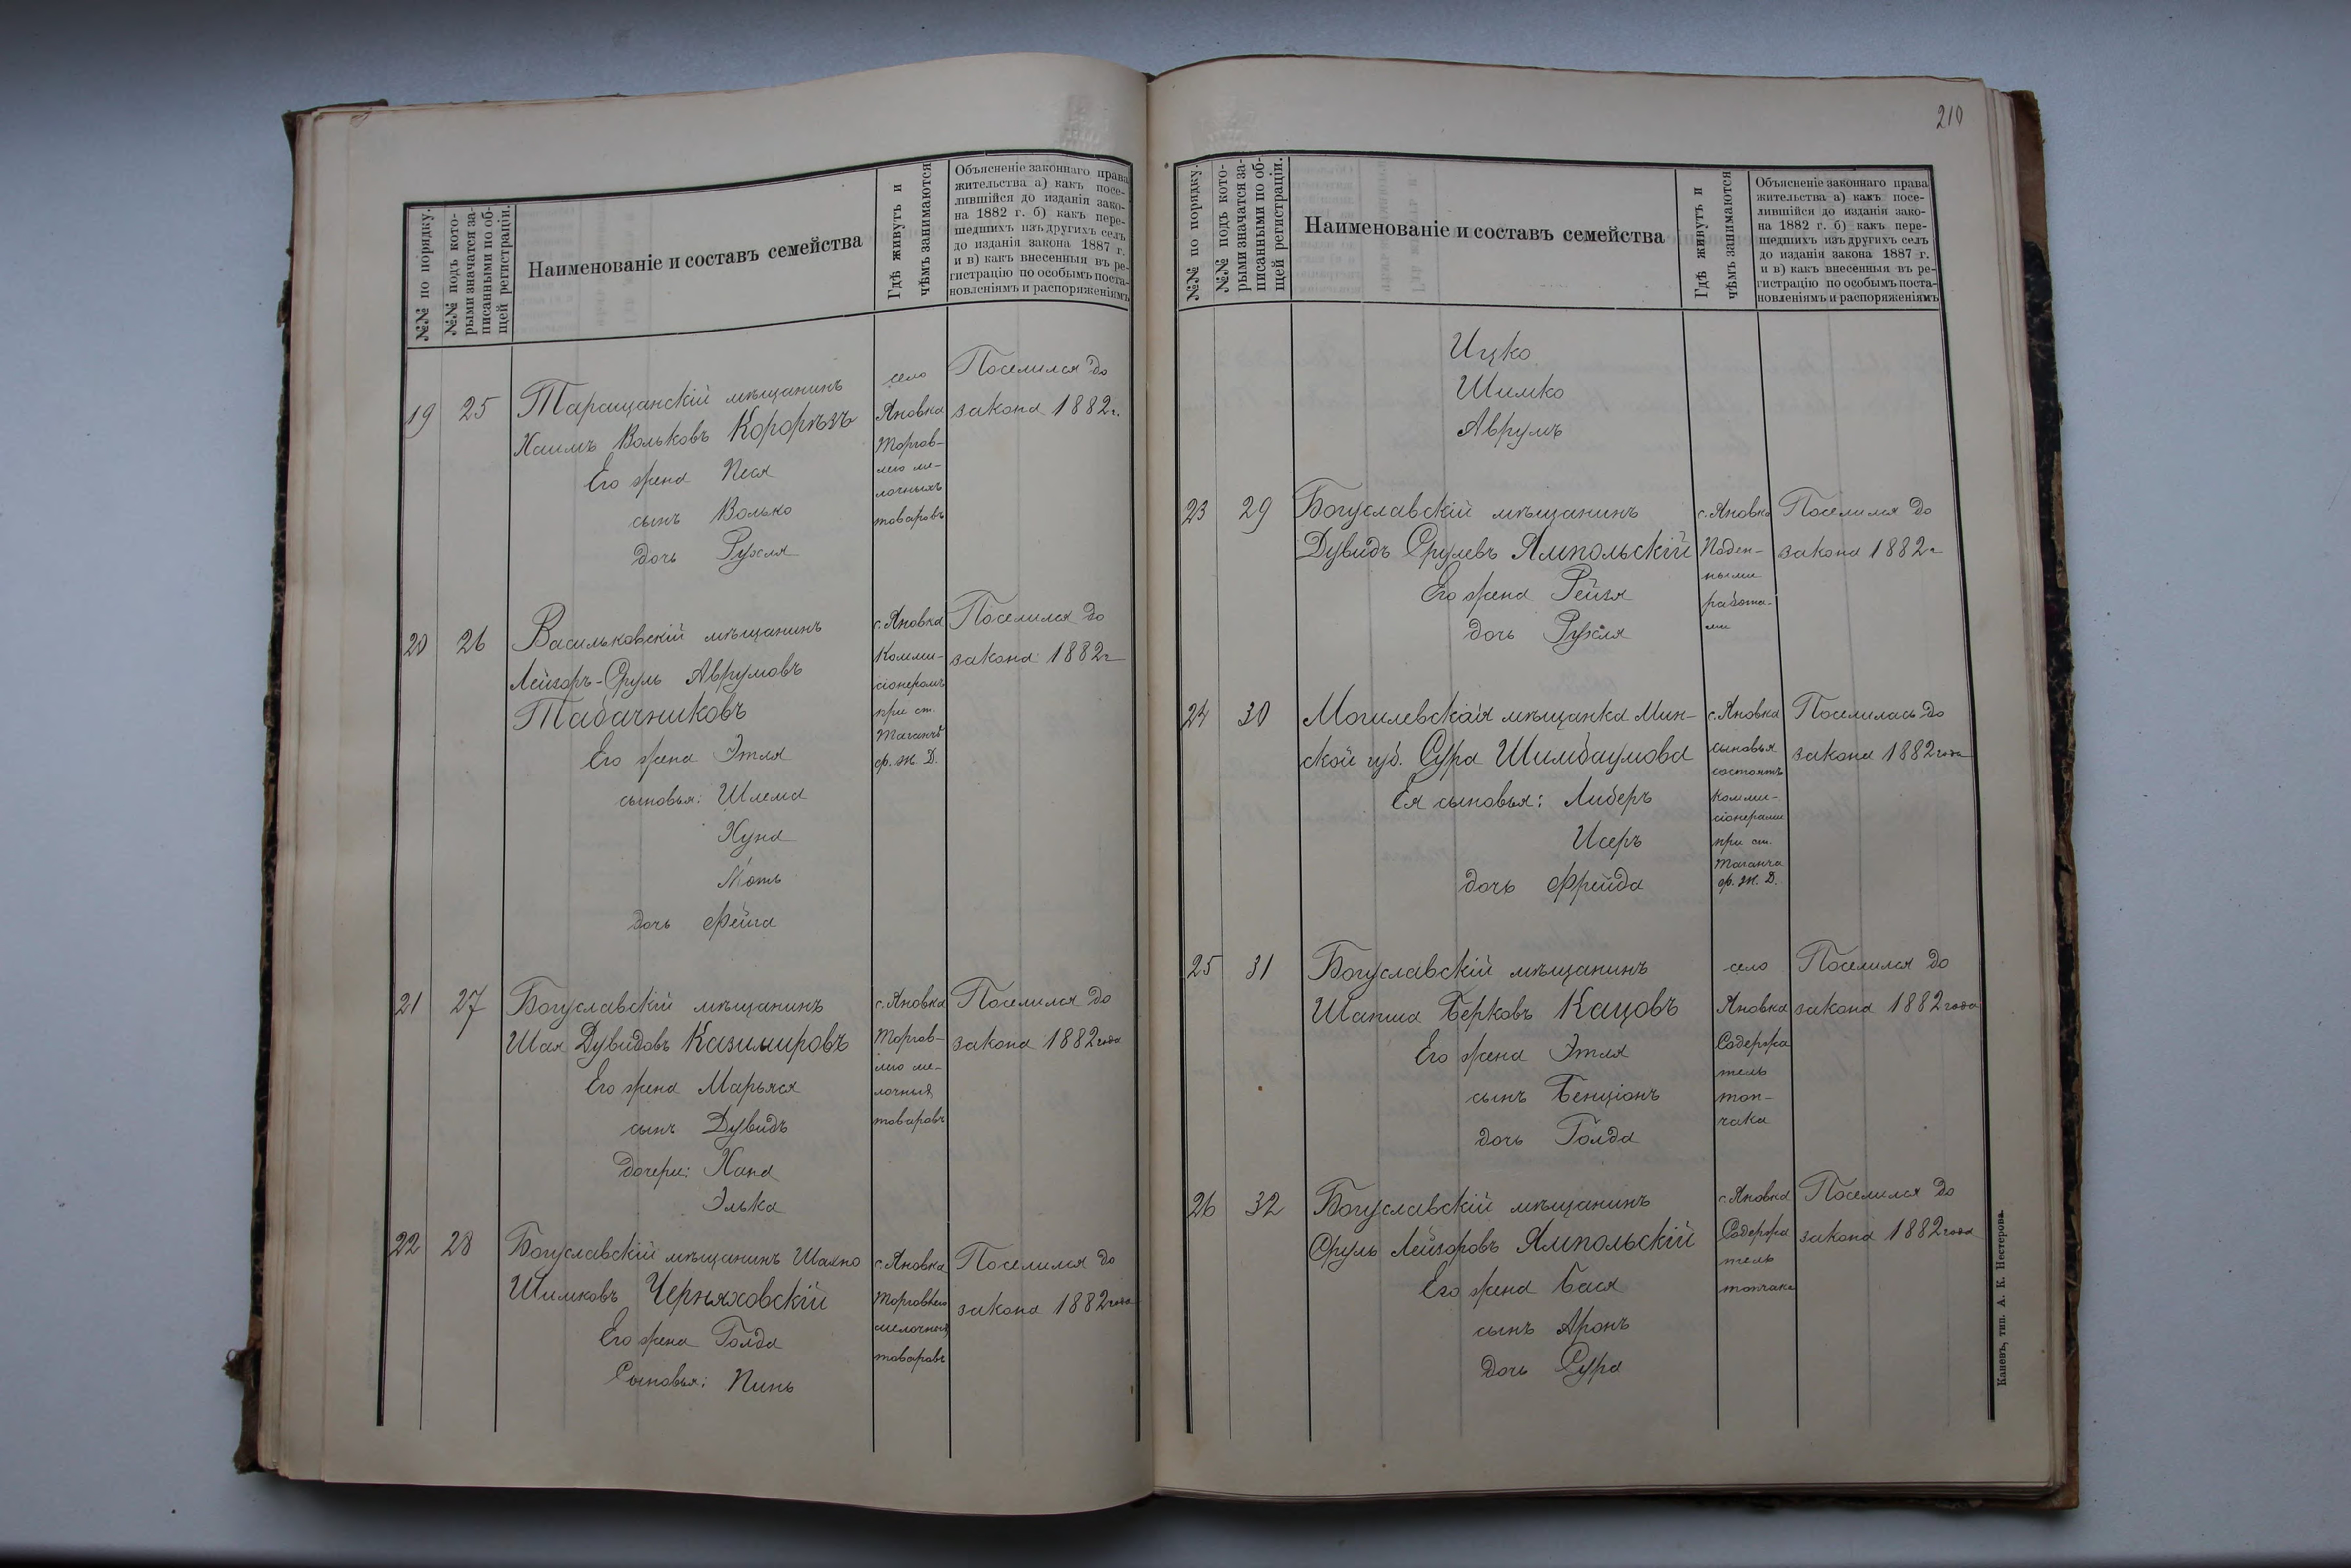 №№ по порядку.
№№ подъ кото-
рыми значатся за-
писанными по об-
щей регистраціи.
Наименованіе и составъ семейства
Гдѣ живутъ и
чѣмъ занимаются
Объясненіе законнаго права
жительства а) какъ посе-
лившійся до изданія зако-
на 1882 г. б) какъ пере-
шедшихъ изъ другихъ селъ
до изданія закона 1887 г.
и в) какъ внесенныя въ ре-
гистрацію по особымъ поста-
новленіямъ и распоряженіямъ
19 25 Таращанскій мѣщанинъ
Хаимъ Вольковъ Корорѣзъ
Его жена Песя
сынъ Волько
дочь Рухля
село
Яновка
Торгов-
лею ме-
лочныхъ
товаровъ
Поселился до
закона 1882 г.
20 26 Васильковскій мѣщанинъ
Лейзоръ-Сруль Аврумовъ
Табачниковъ
Его жена Этля
сыновья: Шлема
Хуна
Моть
дочь Фейга
с. Яновка
Комми-
сіонеромъ
при ст.
Таганчѣ
ф. ж. д.
Поселился до
закона 1882 г
21 27 Богуславскій мѣщанинъ
Шая Дувидовъ Казимировъ
Его жена Марьяся
сынъ Дувидъ
дочери: Хана
Элька
с. Яновка
Торгов-
лею ме-
лочных
товаровъ
Поселился до
закона 1882 года
22 28 Богуславскій мѣщанинъ Шахно
Шимковъ Черняховскій
Его жена Голда
Сыновья: Пинь
с. Яновка
Торговлею
мелочных
товаровъ
Поселился до
закона 1882 года
210
№№ по порядку.
№№ подъ кото-
рыми значатся за-
писанными по об-
щей регистраціи.
Наименованіе и составъ семейства
Гдѣ живутъ и
чѣмъ занимаются
Объясненіе законнаго права
жительства а) какъ посе-
лившійся до изданія зако-
на 1882 г. б) какъ пере-
шедшихъ изъ другихъ селъ
до изданія закона 1887 г.
и в) какъ внесенныя въ ре-
гистрацію по особымъ поста-
новленіямъ и распоряженіямъ
Ицко
Шимко
Аврумъ
23 29 Богуславскій мѣщанинъ
Дувидъ Срулевъ Ямпольскій
Его жена Рейзя
дочь Рухля
с. Яновка
Поден-
ными
работа-
ми
Поселился до
закона 1882 г
24 30 Могилевская мѣщанка Мин-
ской губ. Сура Шимбаумова
Ея сыновья: Либеръ
Исеръ
дочь Фрейда
с. Яновка
сыновья
состоятъ
комми-
сіонерами
при ст.
Таганча
ф. ж. д.
Поселилась до
закона 1882 года
25 31 Богуславскій мѣщанинъ
Шапша Берковъ Кацовъ
Его жена Этля
сынъ Бенціонъ
дочь Голда
село
Яновка
Содержа
тель
топ-
чака
Поселился до
закона 1882 года
26 32 Богуславскій мѣщанинъ
Сруль Лейзоровъ Ямпольскій
Его жена Бася
сынъ Аронъ
дочь Сура
с. Яновка
Содержа
тель
топчака
Поселился до
закона 1882 года
Каневъ, тип. А. К. Нестерова.